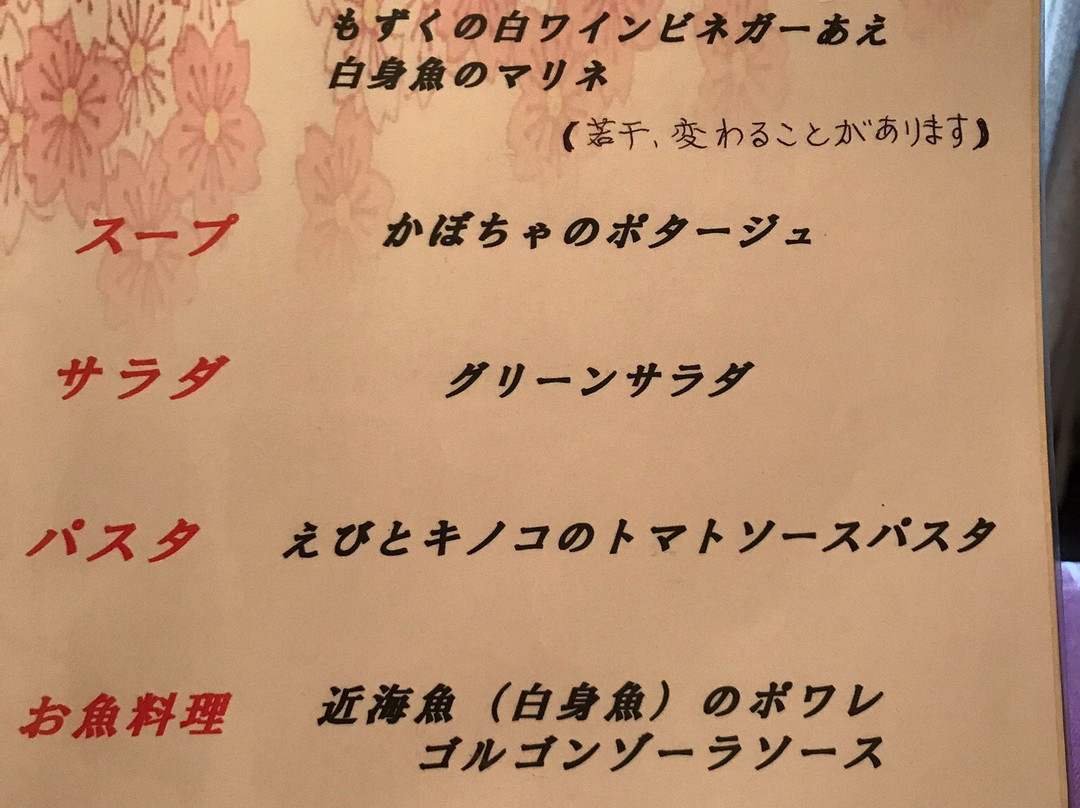 もずくの白ワインビネガーあえ
白身魚のマリネ
(若干、変わることがあります)
スープ かぼちゃのポタージュ
サラダ グリーンサラダ
パスタ えびとキノコのトマトソースパスタ
お魚料理 近海魚（白身魚）のポワレ
ゴルゴンゾーラソース